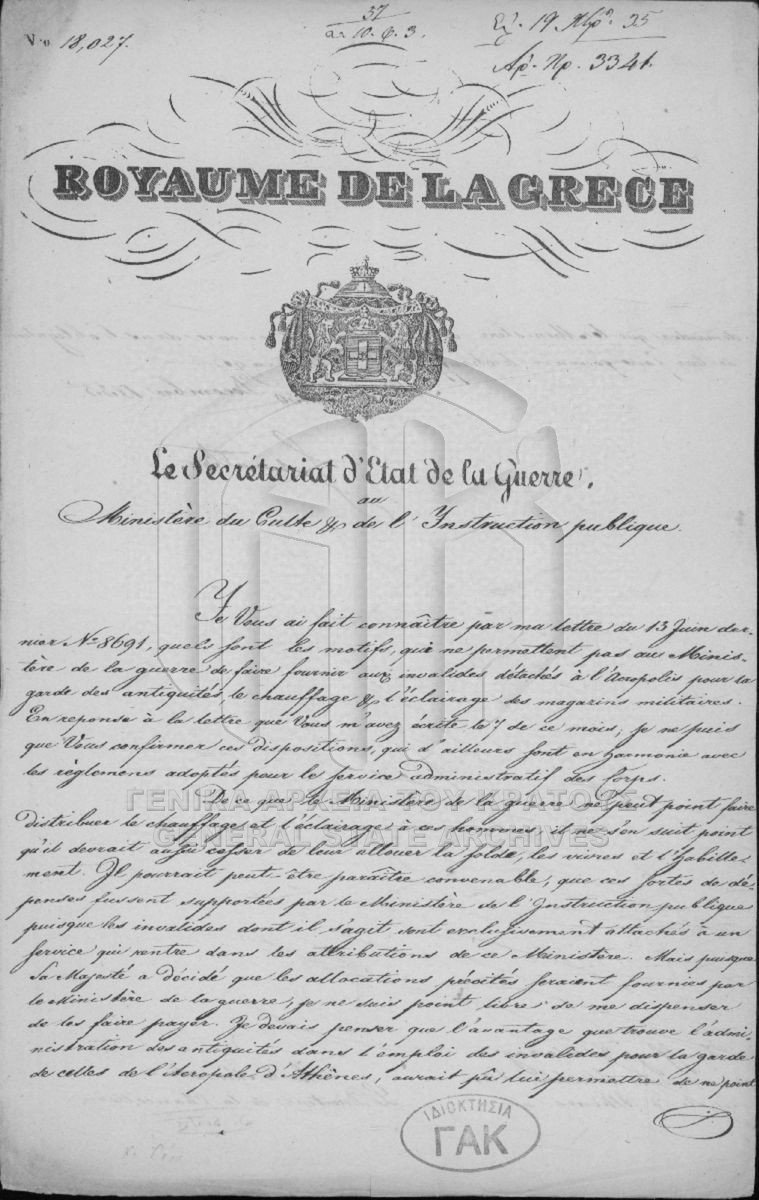 No 18,027.
37
ar 10. 6. 3.
19 35
Ap. Np. 3341.
ROYAUME DE LA GRECE
Le Secrétariat d'Etat de la Guerre,
au
Ministère du Culte & de l'Instruction publique.
Je Vous ai fait connaître par ma lettre du 13 Juin der-
nier No 8691, quels sont les motifs, qui ne permettent pas au Minis-
tère de la guerre de faire fournir aux invalides détachés à l'Acropolis pour la
garde des antiquités, le chauffage & l'éclairage des magasins militaires.
En reponse à la lettre que Vous m'avez écrite le 7 de ce mois, je ne puis
que Vous confirmer ces dispositions, qui d'ailleurs sont en harmonie avec
les règlemens adoptés pour le service administratif des Corps.
De ce que le Ministère de la guerre ne peut point faire
distribuer le chauffage et l'éclairage à ces hommes, il ne s'en suit point
qu'il devrait aussi cesser de leur allouer la solde, les vivres et l'habille-
ment. Il pourrait peut-être paraître convenable, que ces sortes de dé-
penses fussent supportées par le Ministère de l'Instruction publique
puisque les invalides dont il s'agit sont exclusivement attachés à un
service qui rentre dans les attributions de ce Ministère. Mais puisque
Sa Majesté a décidé que les allocations précités seraient fournies par
le Ministère de la guerre, je ne suis point libre de me dispenser
de les faire payer. Je devais penser que l'avantage que trouve l'admi-
nistration des antiquités dans l'emploi des invalides pour la garde
de celles de l'Acropole d'Athènes, aurait pû lui permettre de ne point
ΓΕΝΙΚΑ ΑΡΧΕΙΑ ΤΟΥ ΚΡΑΤΟΥΣ
GENERAL STATE ARCHIVES
ΙΔΙΟΚΤΗΣΙΑ
ΓΑΚ